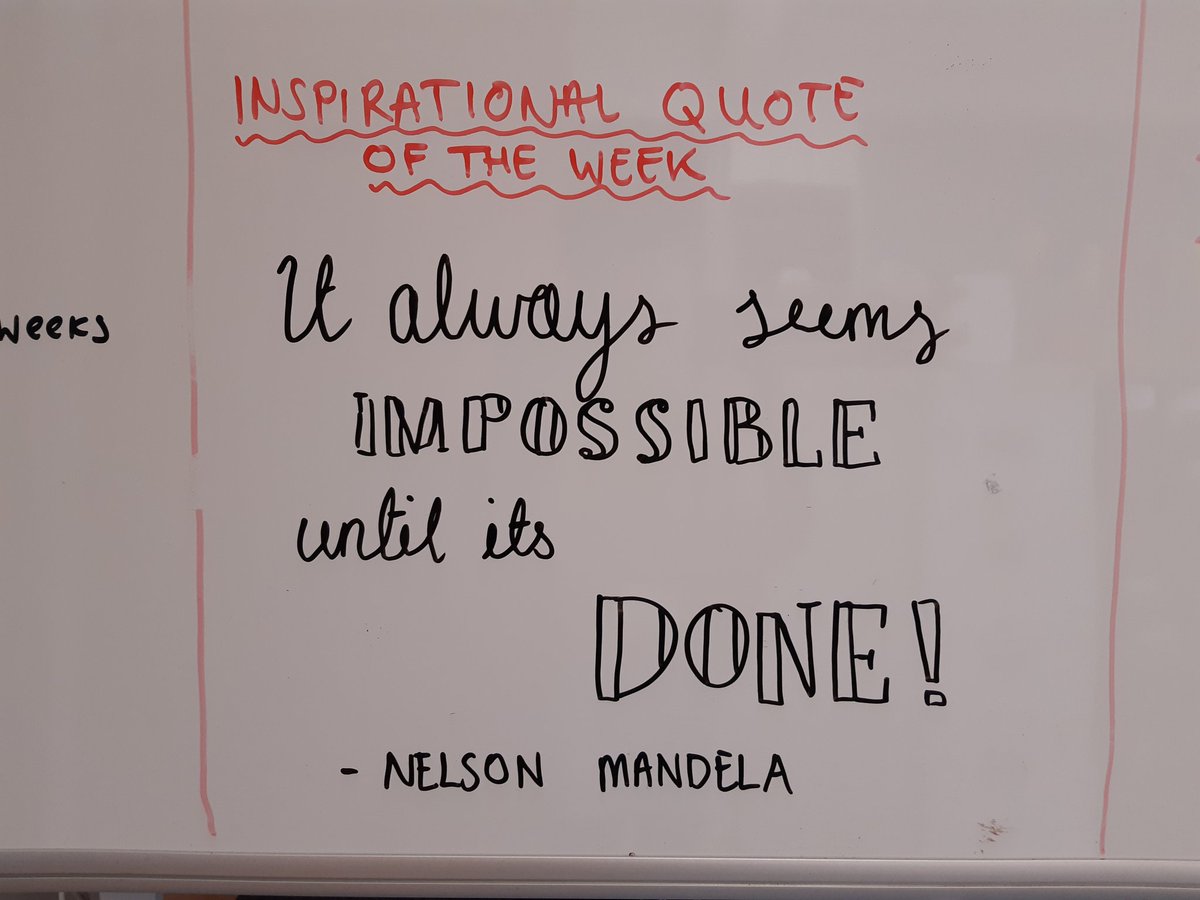 INSPIRATIONAL QUOTE
OF THE WEEK
weeks
It always seems
IMPOSSIBLE
until its
DONE!
- NELSON MANDELA